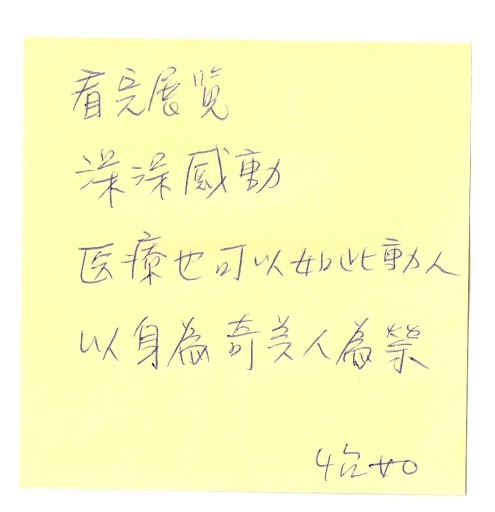 看完展览
深深感動
医療也可以如此動人
以身為奇美人為榮